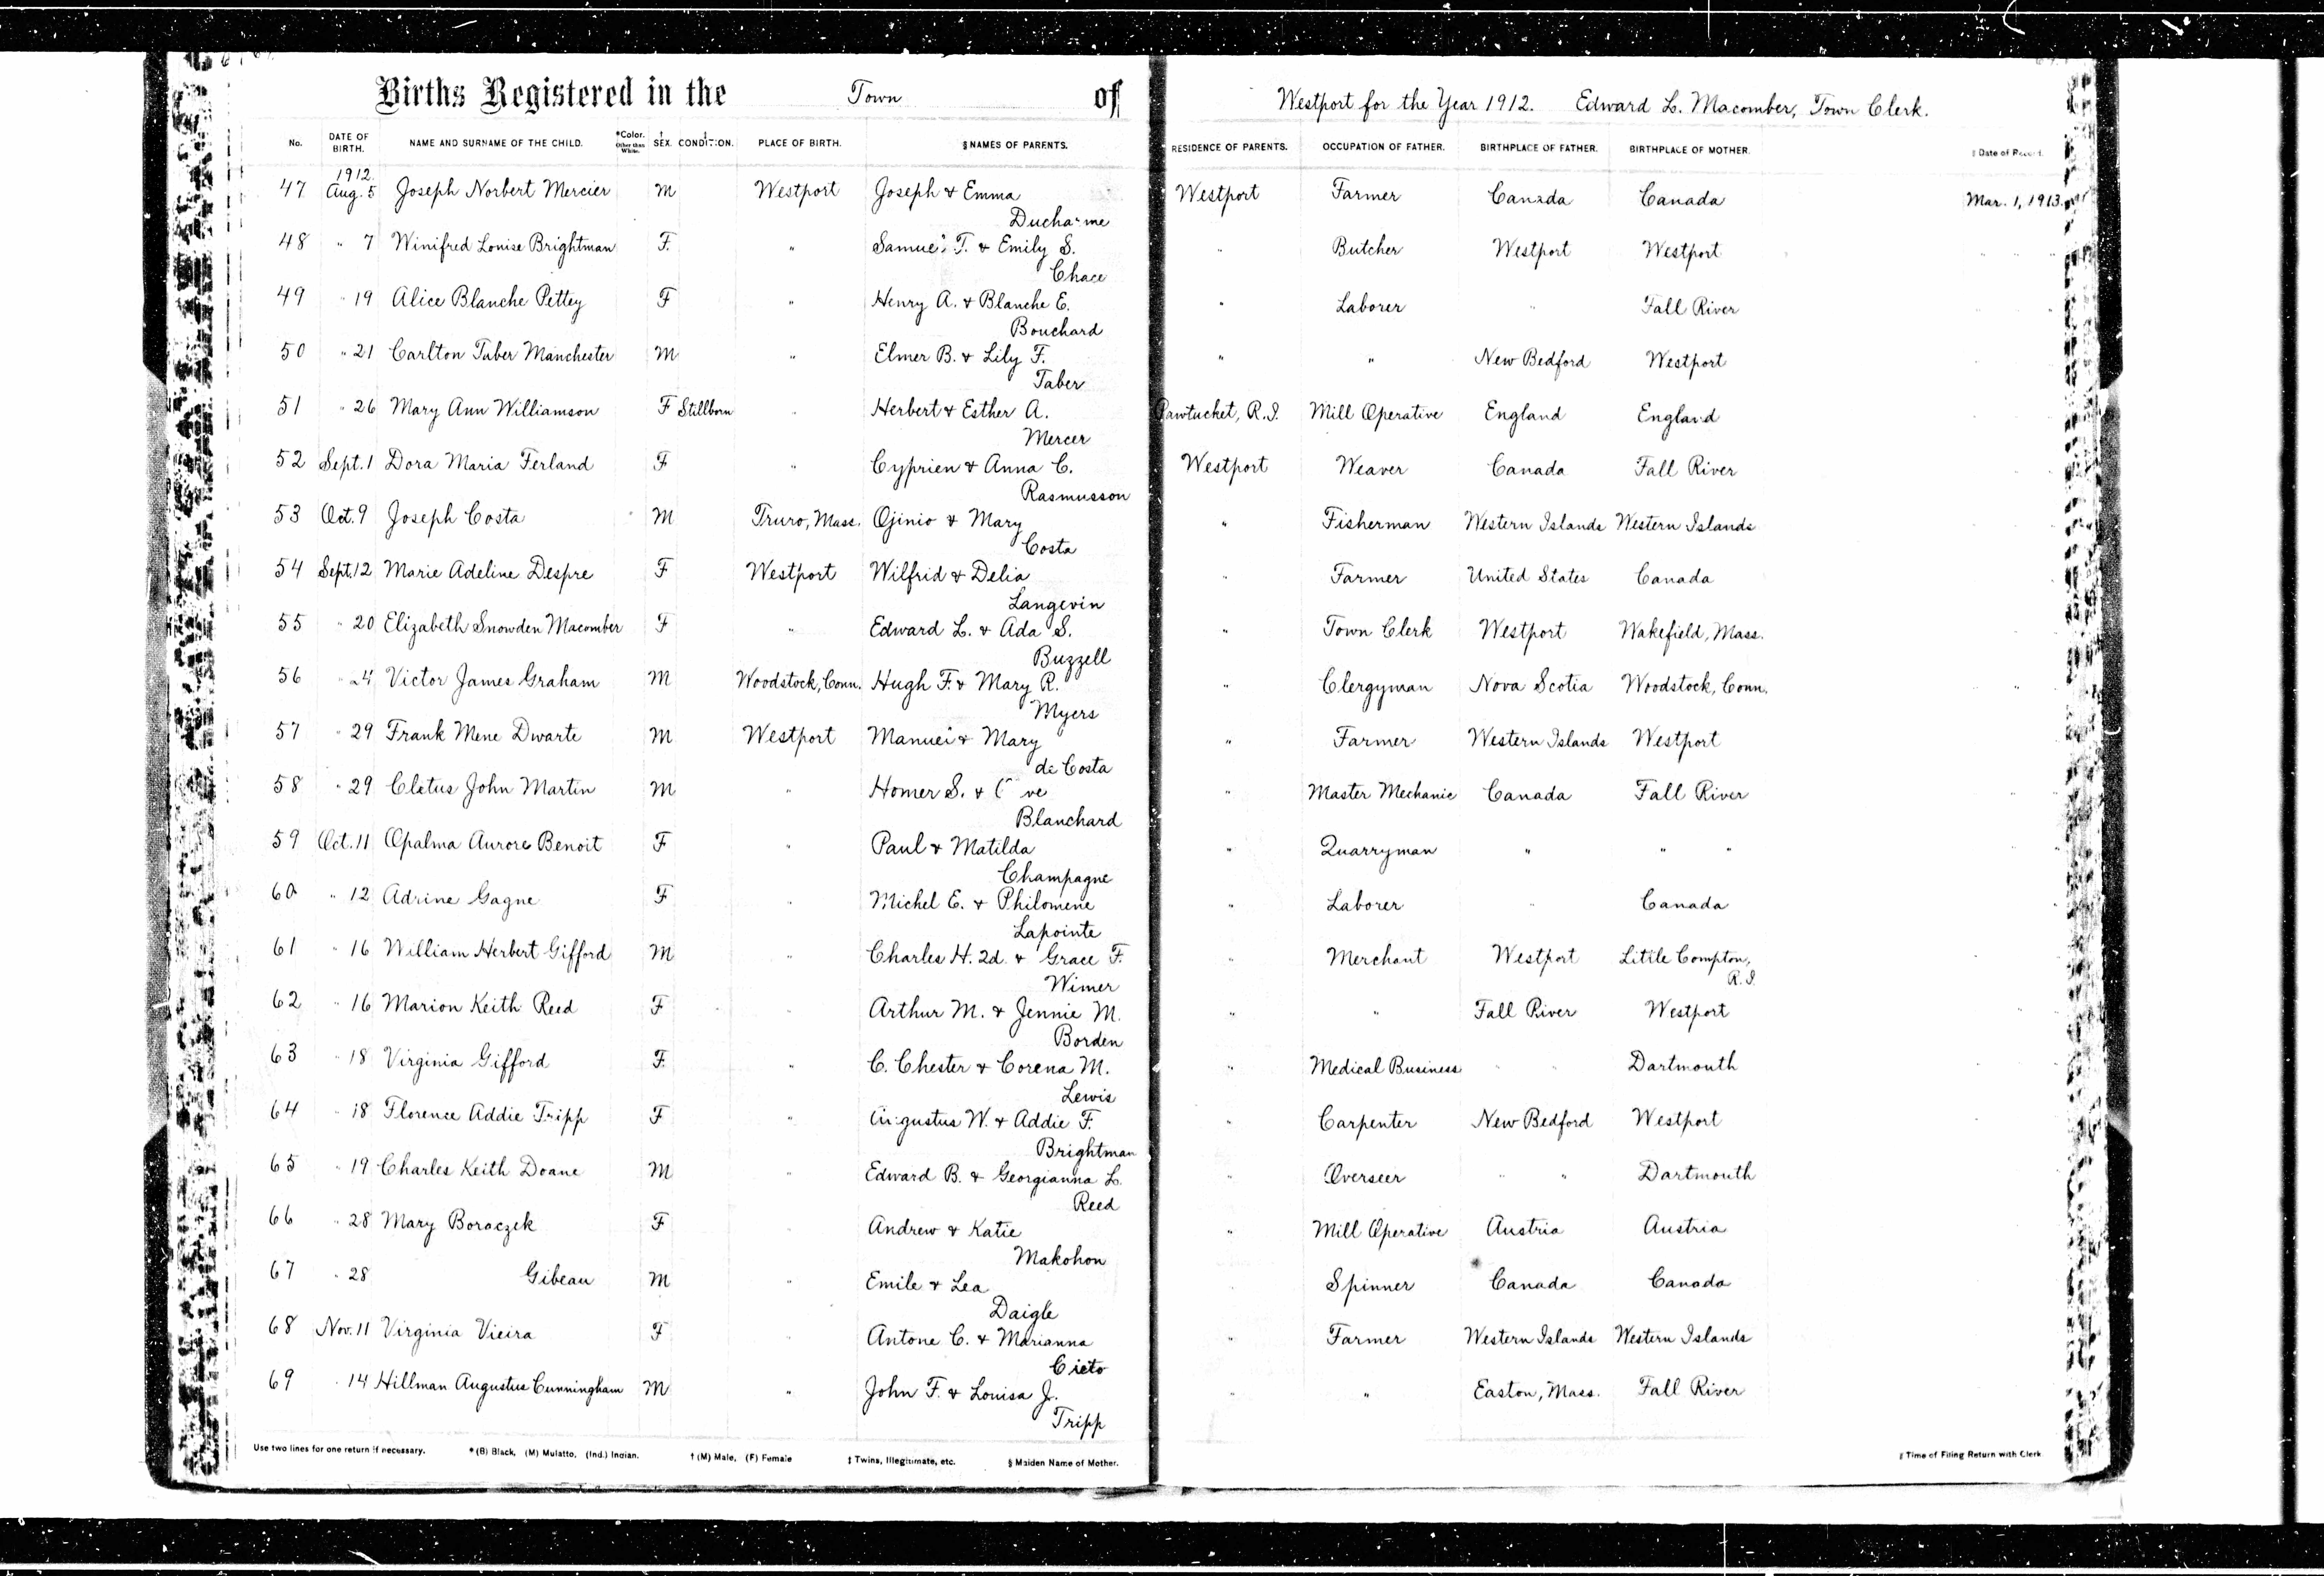 Births Registered in the Town of Westport for the Year 1912. Edward L. Macomber, Town Clerk.
No. DATE OF BIRTH. NAME AND SURNAME OF THE CHILD. *Color. Other than White. † SEX. ‡ CONDITION. PLACE OF BIRTH. § NAMES OF PARENTS. RESIDENCE OF PARENTS. OCCUPATION OF FATHER. BIRTHPLACE OF FATHER. BIRTHPLACE OF MOTHER. Date of Record.
1912.
47 Aug. 5 Joseph Norbert Mercier M Westport Joseph & Emma Westport Farmer Canada Canada Mar. 1, 1913.
Ducharme
48 " 7 Winifred Louise Brightman F. " Samuel T. & Emily S. " Butcher Westport Westport " "
Chace
49 " 19 Alice Blanche Pettey F " Henry A. & Blanche E. " Laborer " Fall River
Bouchard
50 " 21 Carlton Taber Manchester M " Elmer B. & Lily F. " " New Bedford Westport
Taber
51 " 26 Mary Ann Williamson F Stillborn " Herbert & Esther A. Pawtucket, R.I. Mill Operative England England
Mercer
52 Sept. 1 Dora Maria Ferland F " Cyprien & Anna C. Westport Weaver Canada Fall River
Rasmusson
53 Oct. 9 Joseph Costa M Truro, Mass. Ojinio & Mary " Fisherman Western Islands Western Islands
Costa
54 Sept. 12 Marie Adeline Despre F Westport Wilfrid & Delia " Farmer United States Canada
Langevin
55 " 20 Elizabeth Snowden Macomber F " Edward L. & Ada S. " Town Clerk Westport Wakefield, Mass.
Buzzell
56 " 24 Victor James Graham M Woodstock, Conn. Hugh F. & Mary R. " Clergyman Nova Scotia Woodstock, Conn. "
Myers
57 " 29 Frank Mene Dwarte M Westport Manuel & Mary " Farmer Western Islands Westport
de Costa
58 " 29 Cletus John Martin M " Homer S. & " Master Mechanic Canada Fall River
Blanchard
59 Oct. 11 Opalma Aurore Benoit F " Paul & Matilda " Quarryman " " "
Champagne
60 " 12 Adrine Gagne F " Michel E. & Philomene " Laborer " Canada
Lapointe
61 " 16 William Herbert Gifford M " Charles H. 2d. & Grace F. " Merchant Westport Little Compton,
R.I.
Wimer
62 " 16 Marion Keith Reed F " Arthur M. & Jennie M. " " Fall River Westport
Borden
63 " 18 Virginia Gifford F. " C. Chester & Corena M. " Medical Business " " Dartmouth
Lewis
64 " 18 Florence Addie Tripp F " Augustus W. & Addie F. " Carpenter New Bedford Westport
Brightman
65 " 19 Charles Keith Doane M " Edward B. & Georgianna L. " Overseer " " Dartmouth
Reed
66 " 28 Mary Boraczek F " Andrew & Katie " Mill Operative Austria Austria
Makohon
67 " 28 Gibeau M " Emile & Lea " Spinner Canada Canada
Daigle
68 Nov. 11 Virginia Vieira F " Antone C. & Marianna " Farmer Western Islands Western Islands
Cieto
69 " 14 Hillman Augustus Cunningham M " John F. & Louisa J. " " Easton, Mass. Fall River
Tripp
Use two lines for one return if necessary. * (B) Black, (M) Mulatto, (Ind.) Indian. † (M) Male, (F) Female ‡ Twins, Illegitimate, etc. § Maiden Name of Mother. Time of Filing Return with Clerk